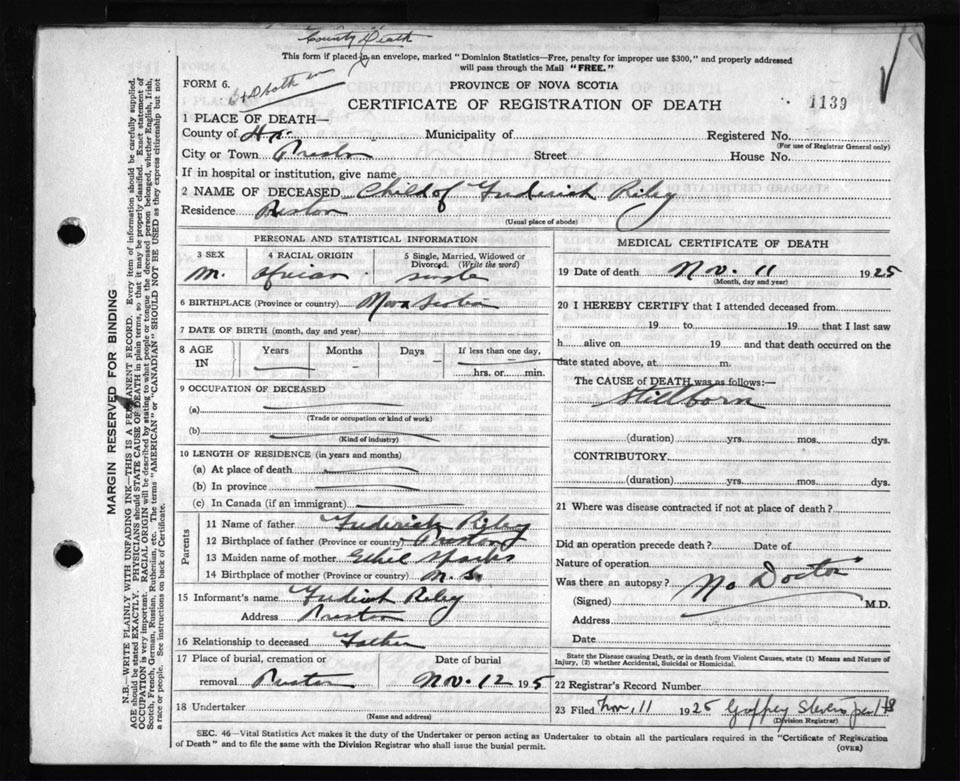 County Death
This form if placed in an envelope, marked "Dominion Statistics—Free, penalty for improper use $300," and properly addressed
will pass through the Mail "FREE."
FORM 6.
PROVINCE OF NOVA SCOTIA
CERTIFICATE OF REGISTRATION OF DEATH
1139
1 PLACE OF DEATH—
County of Hx. Municipality of Registered No.
(For use of Registrar General only)
City or Town Preston Street House No.
If in hospital or institution, give name
2 NAME OF DECEASED Child of Frederick Riley
Residence Preston
(Usual place of abode)
PERSONAL AND STATISTICAL INFORMATION
3 SEX 4 RACIAL ORIGIN 5 Single, Married, Widowed or Divorced. (Write the word)
M. African single
6 BIRTHPLACE (Province or country) Nova Scotia
7 DATE OF BIRTH (month, day and year)
8 AGE IN Years Months Days If less than one day,
hrs. or min.
9 OCCUPATION OF DECEASED
(a)
(Trade or occupation or kind of work)
(b)
(Kind of industry)
10 LENGTH OF RESIDENCE (in years and months)
(a) At place of death
(b) In province
(c) In Canada (if an immigrant)
Parents
11 Name of father Frederick Riley
12 Birthplace of father (Province or country) Preston
13 Maiden name of mother Ethel Sparks
14 Birthplace of mother (Province or country) N.S.
15 Informant's name Fredrick Riley
Address Preston
16 Relationship to deceased Father
17 Place of burial, cremation or Date of burial
removal Preston Nov. 12 1925
18 Undertaker
(Name and address)
MEDICAL CERTIFICATE OF DEATH
19 Date of death Nov. 11 1925
(Month, day and year)
20 I HEREBY CERTIFY that I attended deceased from
19 to 19 that I last saw
h alive on 19 and that death occurred on the
date stated above, at m.
The CAUSE of DEATH was as follows:—
Stillborn
(duration) yrs. mos. dys.
CONTRIBUTORY
(duration) yrs. mos. dys.
21 Where was disease contracted if not at place of death?
Did an operation precede death? Date of
Nature of operation
Was there an autopsy? No Doctor
(Signed) M.D.
Address
Date
State the Disease causing Death, or in death from Violent Causes, state (1) Means and Nature of
Injury, (2) whether Accidental, Suicidal or Homicidal.
22 Registrar's Record Number
23 Filed Nov, 11 1925
(Division Registrar)
SEC. 46—Vital Statistics Act makes it the duty of the Undertaker or person acting as Undertaker to obtain all the particulars required in the "Certificate of Registration
of Death" and to file the same with the Division Registrar who shall issue the burial permit. (OVER)
MARGIN RESERVED FOR BINDING
N.B.—WRITE PLAINLY WITH UNFADING INK—THIS IS A PERMANENT RECORD. Every item of information should be carefully supplied.
AGE should be stated EXACTLY. PHYSICIANS should STATE CAUSE OF DEATH in plain terms, so that it may be properly classified. Exact statement of
OCCUPATION is very important. RACIAL ORIGIN will be described by stating to what people or tongue the deceased person belonged, whether English, Irish,
Scotch, French, German, Russian, Ruthenian, etc. The terms "AMERICAN" or "CANADIAN" SHOULD NOT BE USED as they express citizenship but not
a race or people. See instructions on back of Certificate.